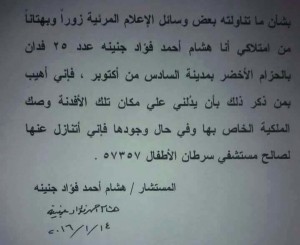 بشأن ما تناولته بعض وسائل الإعلام المرئية زوراً وبهتاناً
من امتلاكي أنا هشام أحمد فؤاد جنينه عدد ٢٥ فدان
بالحزام الأخضر بمدينة السادس من أكتوبر ، فإني أهيب
بمن ذكر ذلك بأن يدّلني علي مكان تلك الأفدنة وصك
الملكية الخاص بها وفي حال وجودها فإني أتنازل عنها
لصالح مستشفي سرطان الأطفال ٥٧٣٥٧ .
المستشار / هشام أحمد فؤاد جنينه
هشام أحمد فؤاد جنينه
٢٠١٦/١/١٤